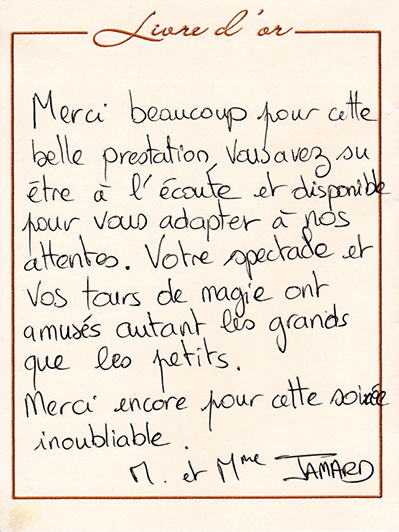 Livre d'or
Merci beaucoup pour cette
belle prestation, Vous avez su
être à l'écoute et disponible
pour vous adapter à nos
attentes. Votre spectacle et
Vos tours de magie ont
amusés autant les grands
que les petits.
Merci encore pour cette soirée
inoubliable.
M. et Mme JAMARD